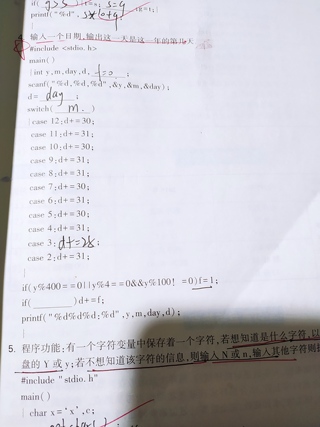 if( g>s ) t=s; s=g
printf("%d", s*10+g
输入一个日期,输出这一天是这一年的第几天
#include <stdio.h>
main()
{int y,m,day,d, f=0;
scanf("%d,%d,%d",&y,&m,&day);
d= day
switch( m. )
{case 12:d+=30;
case 11:d+=31;
case 10:d+=30;
case 9:d+=31;
case 8:d+=31;
case 7:d+=30;
case 6:d+=31;
case 5:d+=30;
case 4:d+=31;
case 3:d+=28;
case 2:d+=31;
}
if(y%400==0||y%4==0&&y%100!=0)f=1;
if( )d+=f;
printf("%d%d%d:%d",y,m,day,d);
}
5. 程序功能:有一个字符变量中保存着一个字符,若想知道是什么字符,以
盘的Y或y;若不想知道该字符的信息,则输入N或n,输入其他字符则
#include "stdio.h"
main()
{char x='x',c;